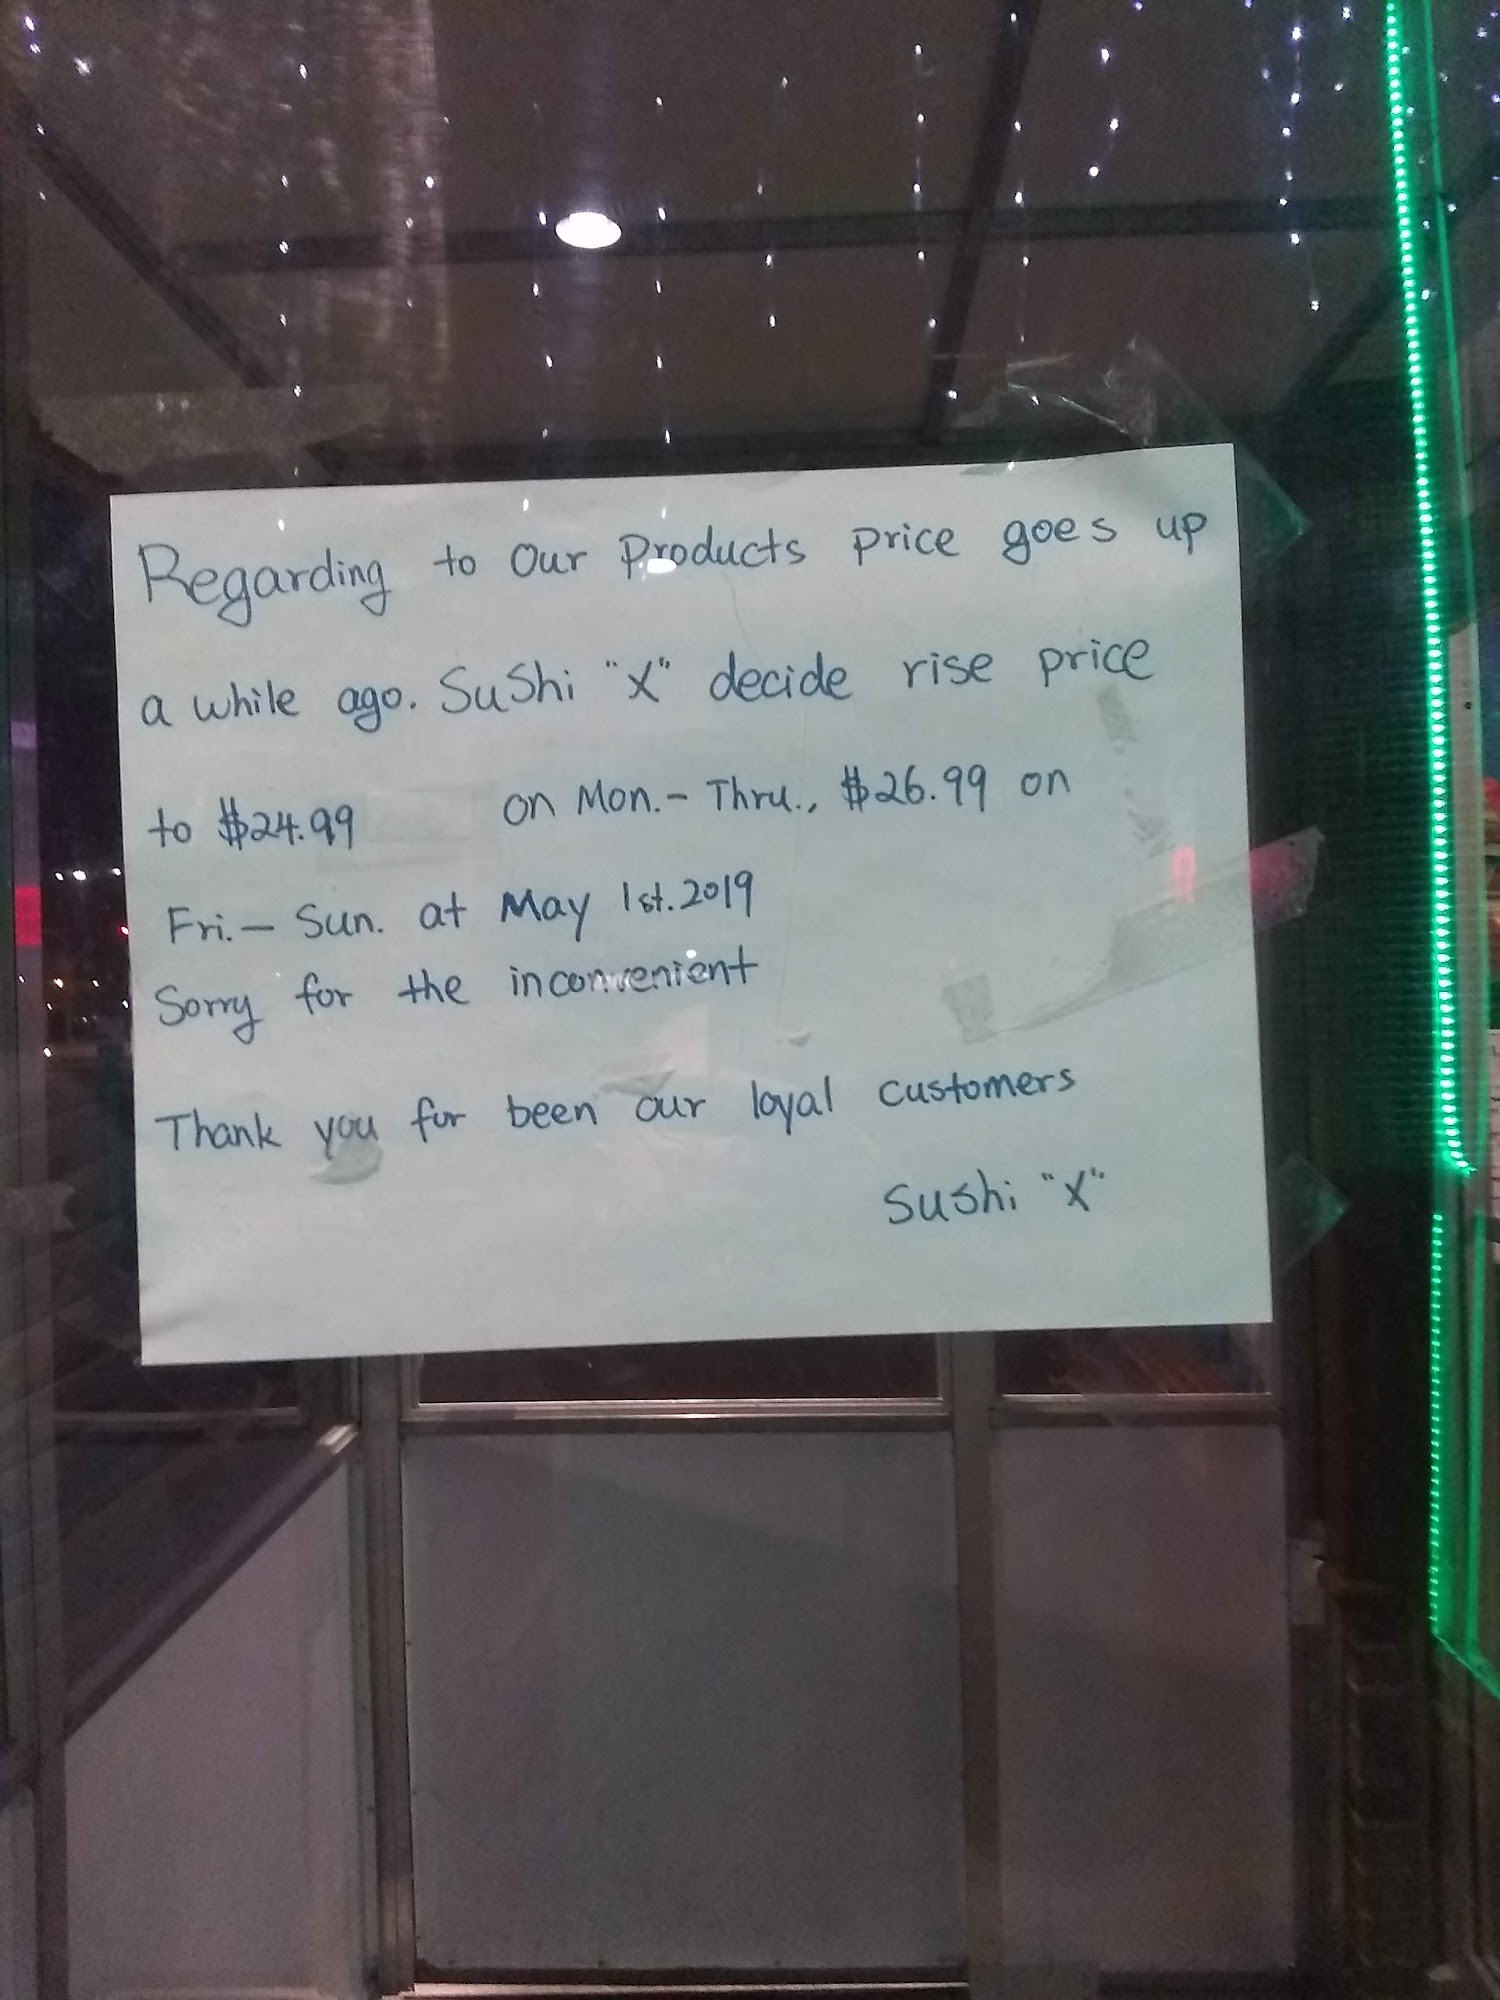 Regarding to Our Products price goes up
a while ago. SuShi "X" decide rise price
to $24.99 on Mon.- Thru., $26.99 on
Fri.- Sun. at May 1st.2019
Sorry for the inconvenient
Thank you for been our loyal customers
Sushi "X"